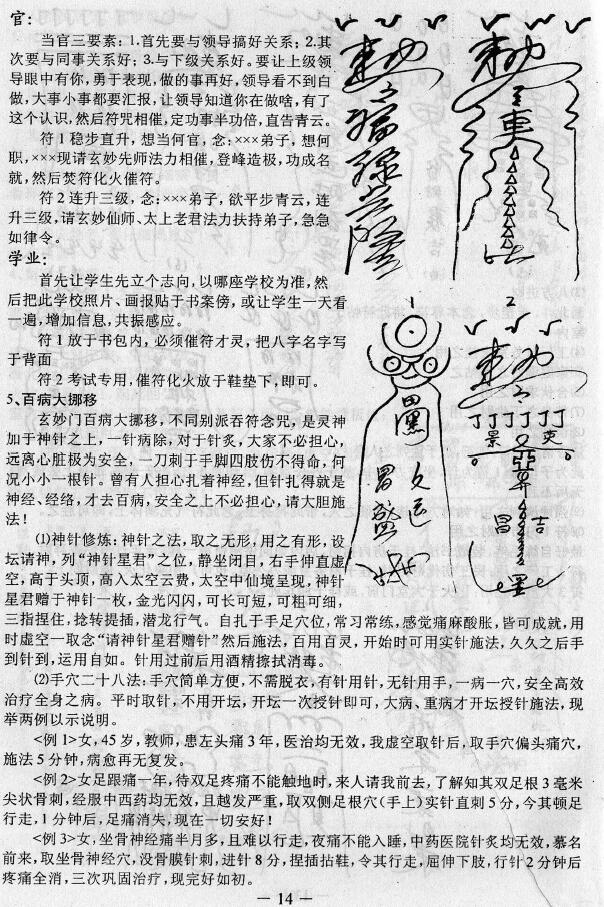 官:
当官三要素:1.首先要与领导搞好关系;2.其
次要与同事关系好;3.与下级关系好。要让上级领
导眼中有你,勇于表现,做的事再好,领导看不到白
做,大事小事都要汇报,让领导知道你在做啥,有了
这个认识,然后符咒相催,定功事半功倍,直告青云。
符1稳步直升,想当何官,念:×××弟子,想何
职,×××现请玄妙先师法力相催,登峰造极,功成名
就,然后焚符化火催符。
符2连升三级,念:×××弟子,欲平步青云,连
升三级,请玄妙仙师、太上老君法力扶持弟子,急急
如律令。
学业:
首先让学生先立个志向,以哪座学校为准,然
后把此学校照片、画报贴于书案傍,或让学生一天看
一遍,增加信息,共振感应。
符1放于书包内,必须催符才灵,把八字名字写
于背面。
符2考试专用,催符化火放于鞋垫下,即可。
5、百病大挪移
玄妙门百病大挪移,不同别派吞符念咒,是灵神
加于神针之上,一针病除,对于针灸,大家不必担心,
远离心脏极为安全,一刀刺于手脚四肢伤不得命,何
况小小一根针。曾有人担心扎着神经,但针扎得就是
神经、经络,才去百病,安全之上不必担心,请大胆施
法!
⑴神针修炼:神针之法,取之无形,用之有形,设
坛请神,列“神针星君”之位,静坐闭目,右手伸直虚
空,高于头顶,高入太空云费,太空中仙境呈现,神针
星君赠于神针一枚,金光闪闪,可长可短,可粗可细,
三指捏住,捻转提插,潜龙行气。自扎于手足穴位,常习常练,感觉痛麻酸胀,皆可成就,用
时虚空一取念“请神针星君赠针”然后施法,百用百灵,开始时可用实针施法,久久之后手
到针到,运用自如。针用过前后用酒精擦拭消毒。
⑵手穴二十八法:手穴简单方便,不需脱衣,有针用针,无针用手,一病一穴,安全高效
治疗全身之病。平时取针,不用开坛,开坛一次授针即可,大病、重病才开坛授针施法,现
举两例以示说明。
<例1>女,45岁,教师,患左头痛3年,医治均无效,我虚空取针后,取手穴偏头痛穴,
施法5分钟,病愈再无复发。
<例2>女足跟痛一年,待双足疼痛不能触地时,来人请我前去,了解知其双足根3毫米
尖状骨刺,经服中西药均无效,且越发严重,取双侧足根穴(手上)实针直刺5分,令其顿足
行走,1分钟后,足痛消失,现在一切安好!
<例3>女,坐骨神经痛半月多,且难以行走,夜痛不能入睡,中药医院针灸均无效,慕名
前来,取坐骨神经穴,没骨膜针刺,进针8分,捏插拈鞋,令其行走,屈伸下肢,行针2分钟后
疼痛全消,三次巩固治疗,现完好如初。
1
2
— 14 —